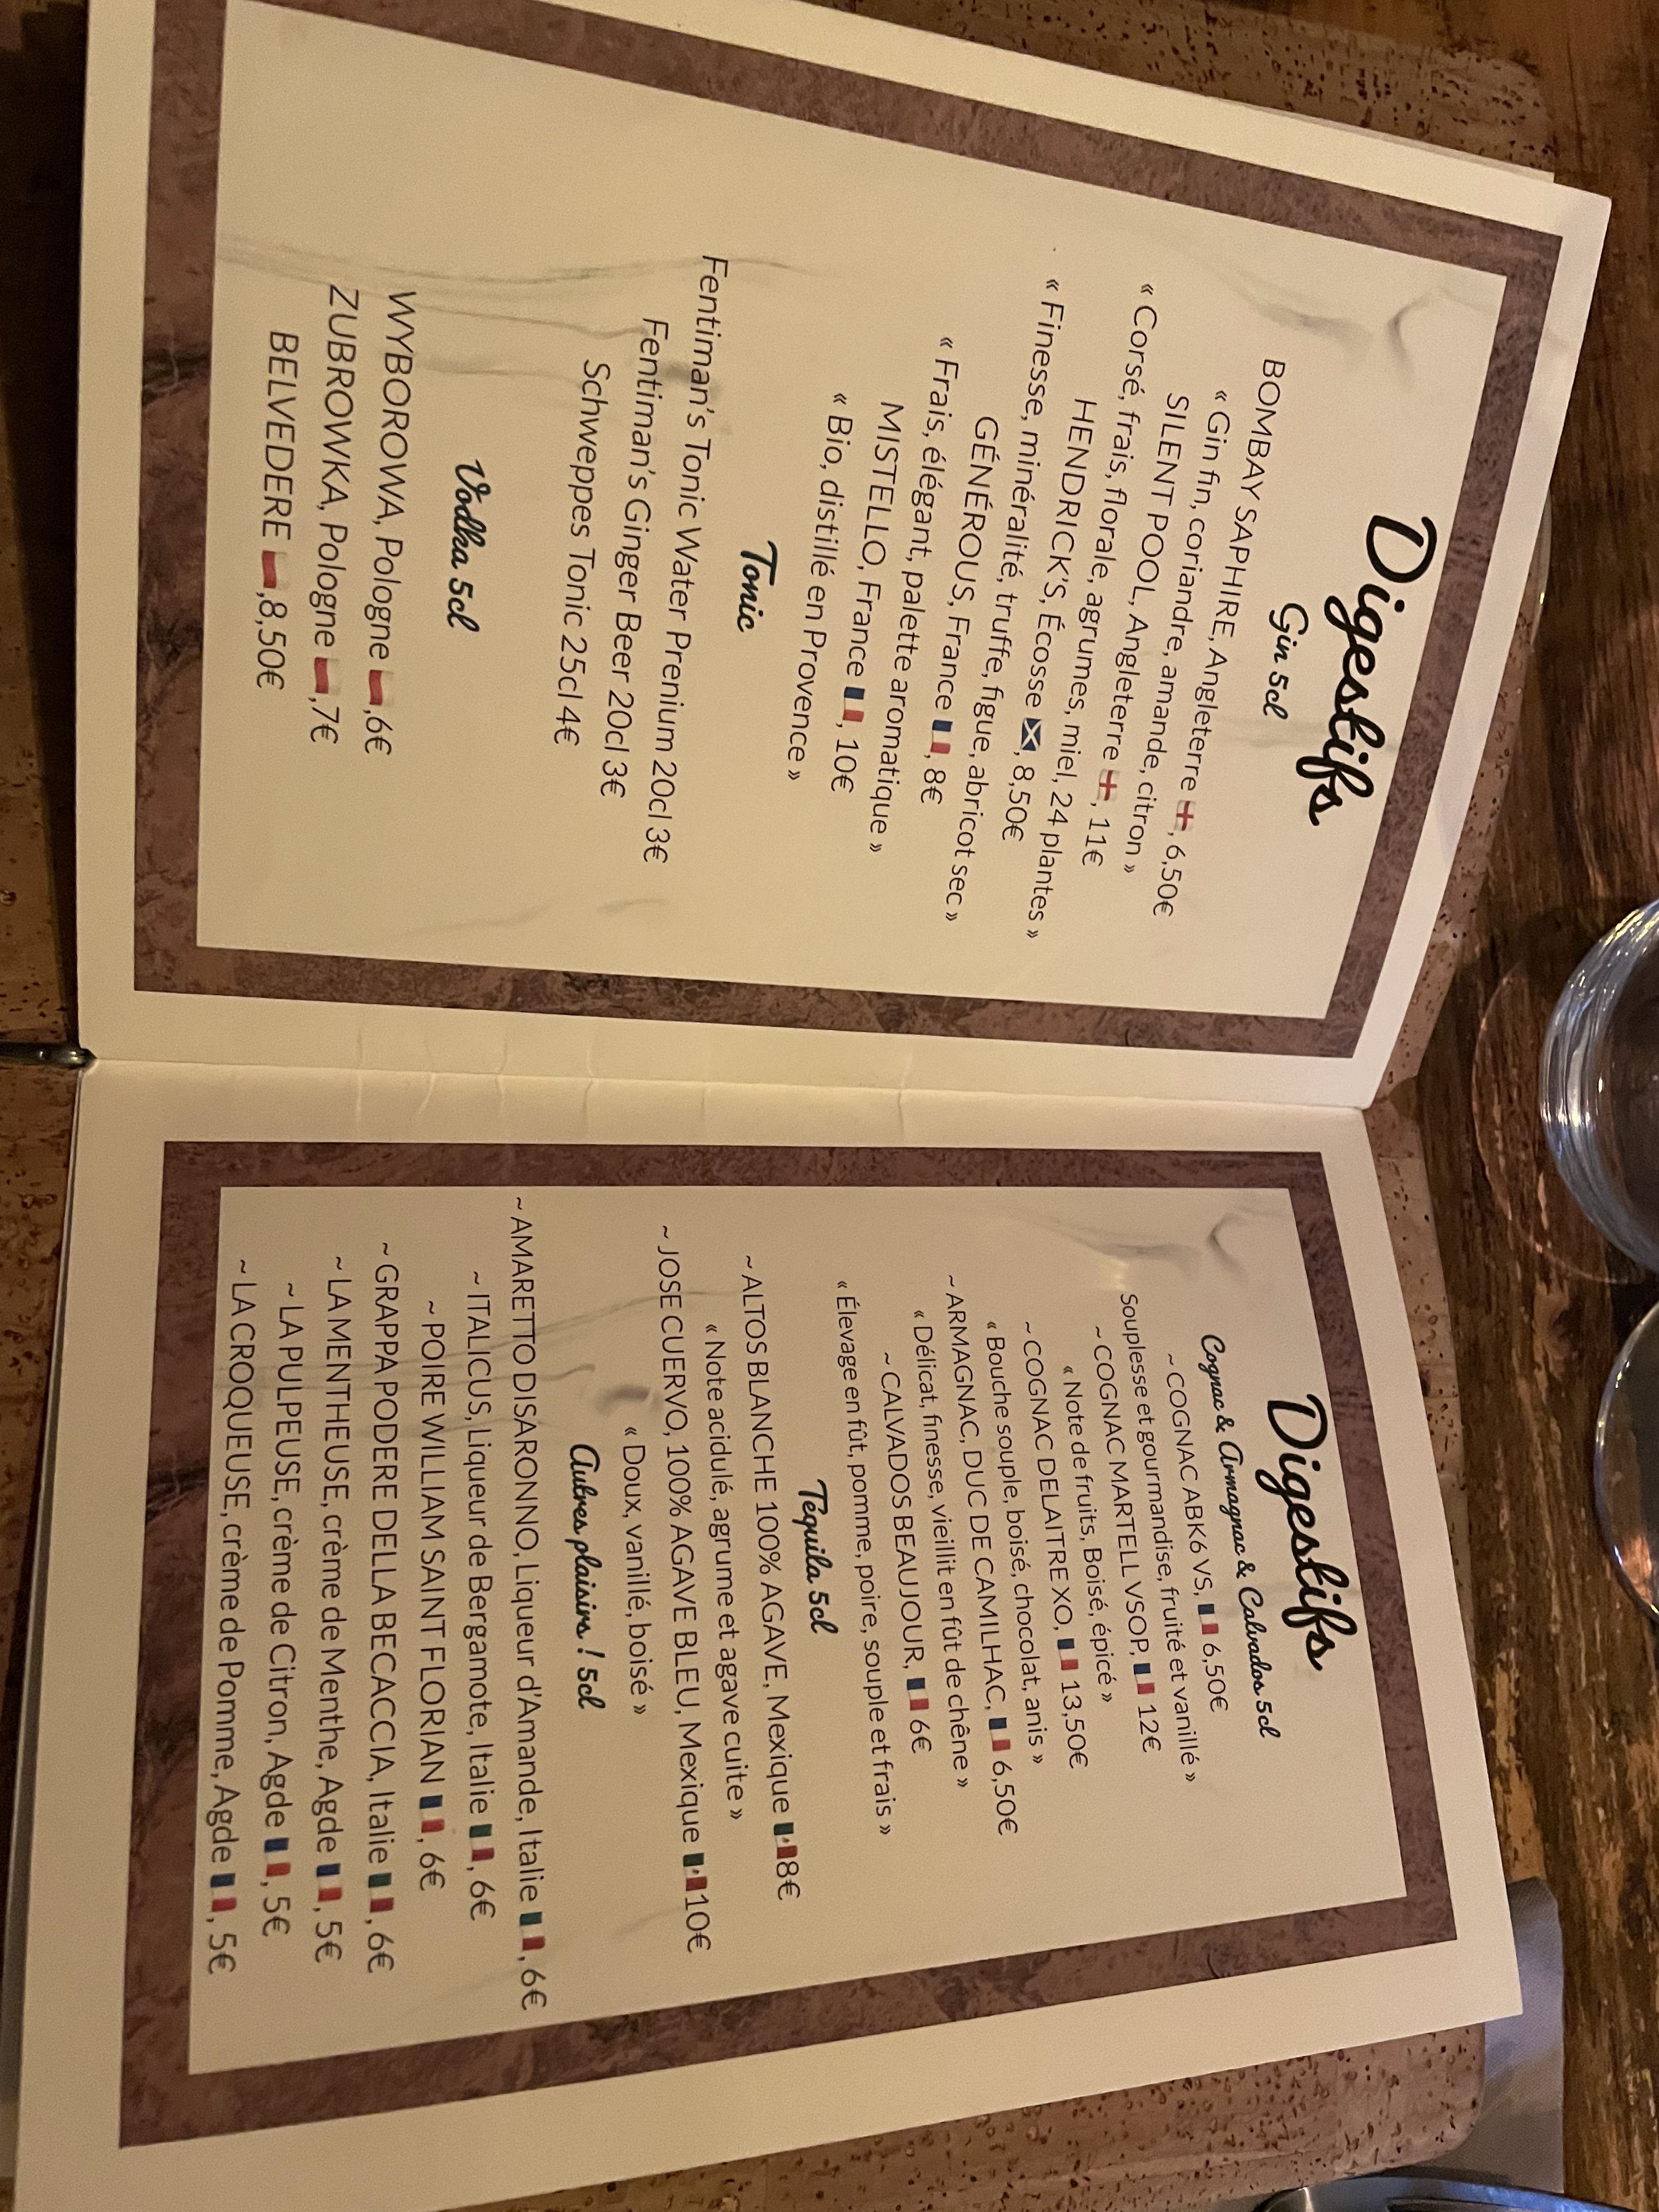 Digestifs
Gin 5cl
BOMBAY SAPHIRE, Angleterre 🏴󠁧󠁢󠁥󠁮󠁧󠁿, 6,50€
« Gin fin, coriandre, amande, citron »
SILENT POOL, Angleterre 🏴󠁧󠁢󠁥󠁮󠁧󠁿, 11€
« Corsé, frais, florale, agrumes, miel, 24 plantes »
HENDRICK'S, Écosse 🏴󠁧󠁢󠁳󠁣󠁴󠁿, 8,50€
« Finesse, minéralité, truffe, figue, abricot sec »
GÉNÉROUS, France 🇫🇷, 8€
« Frais, élégant, palette aromatique »
MISTELLO, France 🇫🇷, 10€
« Bio, distillé en Provence »
Tonic
Fentiman's Tonic Water Prenium 20cl 3€
Fentiman's Ginger Beer 20cl 3€
Schweppes Tonic 25cl 4€
Vodka 5cl
WYBOROWA, Pologne 🇵🇱,6€
ZUBROWKA, Pologne 🇵🇱,7€
BELVEDERE 🇵🇱,8,50€
Digestifs
Cognac & Armagnac & Calvados 5cl
~ COGNAC ABK6 VS, 🇫🇷 6,50€
Souplesse et gourmandise, fruité et vanillé »
~ COGNAC MARTELL VSOP, 🇫🇷 12€
« Note de fruits, Boisé, épicé »
~ COGNAC DELAITRE XO, 🇫🇷 13,50€
« Bouche souple, boisé, chocolat, anis »
~ ARMAGNAC, DUC DE CAMILHAC, 🇫🇷 6,50€
« Délicat, finesse, vieillit en fût de chêne »
~ CALVADOS BEAUJOUR, 🇫🇷 6€
« Élevage en fût, pomme, poire, souple et frais »
Téquila 5cl
~ ALTOS BLANCHE 100% AGAVE, Mexique 🇲🇽8€
« Note acidulé, agrume et agave cuite »
~ JOSE CUERVO, 100% AGAVE BLEU, Mexique 🇲🇽10€
« Doux, vanillé, boisé »
Autres plaisirs ! 5cl
~ AMARETTO DISARONNO, Liqueur d'Amande, Italie 🇮🇹, 6€
~ ITALICUS, Liqueur de Bergamote, Italie 🇮🇹, 6€
~ POIRE WILLIAM SAINT FLORIAN 🇫🇷, 6€
~ GRAPPA PODERE DELLA BECACCIA, Italie 🇮🇹, 6€
~ LA MENTHEUSE, crème de Menthe, Agde 🇫🇷, 5€
~ LA PULPEUSE, crème de Citron, Agde 🇫🇷, 5€
~ LA CROQUEUSE, crème de Pomme, Agde 🇫🇷, 5€